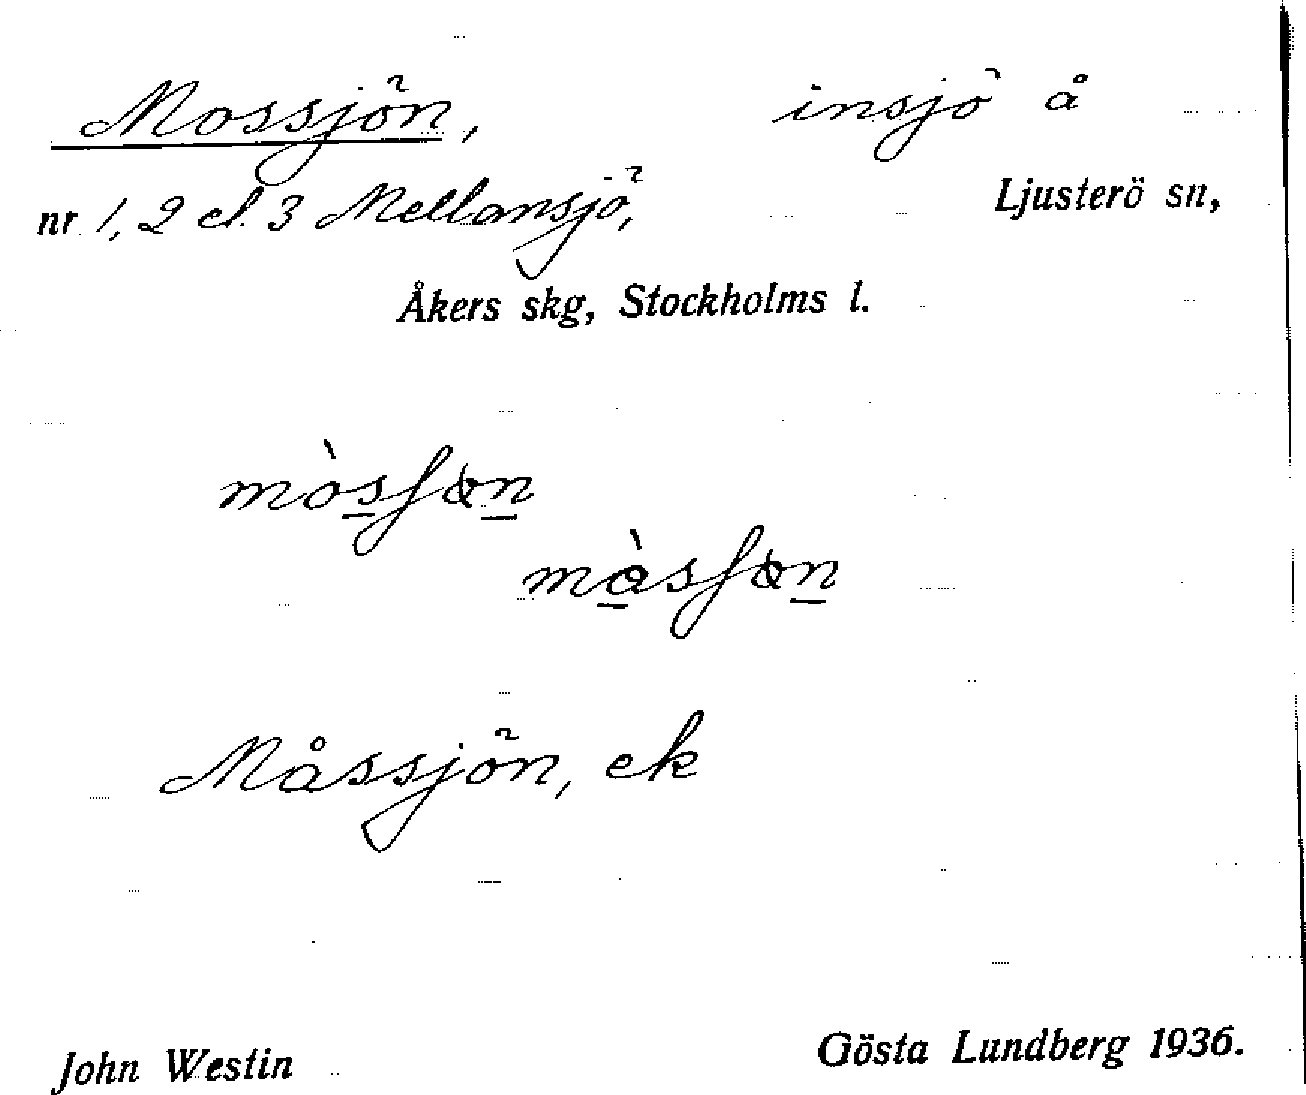 Mossjön, insjö å
nr 1, 2 el. 3 Mellansjö, Ljusterö sn,
Åkers skg, Stockholms l.
Måssjön, ek
John Westin Gösta Lundberg 1936.